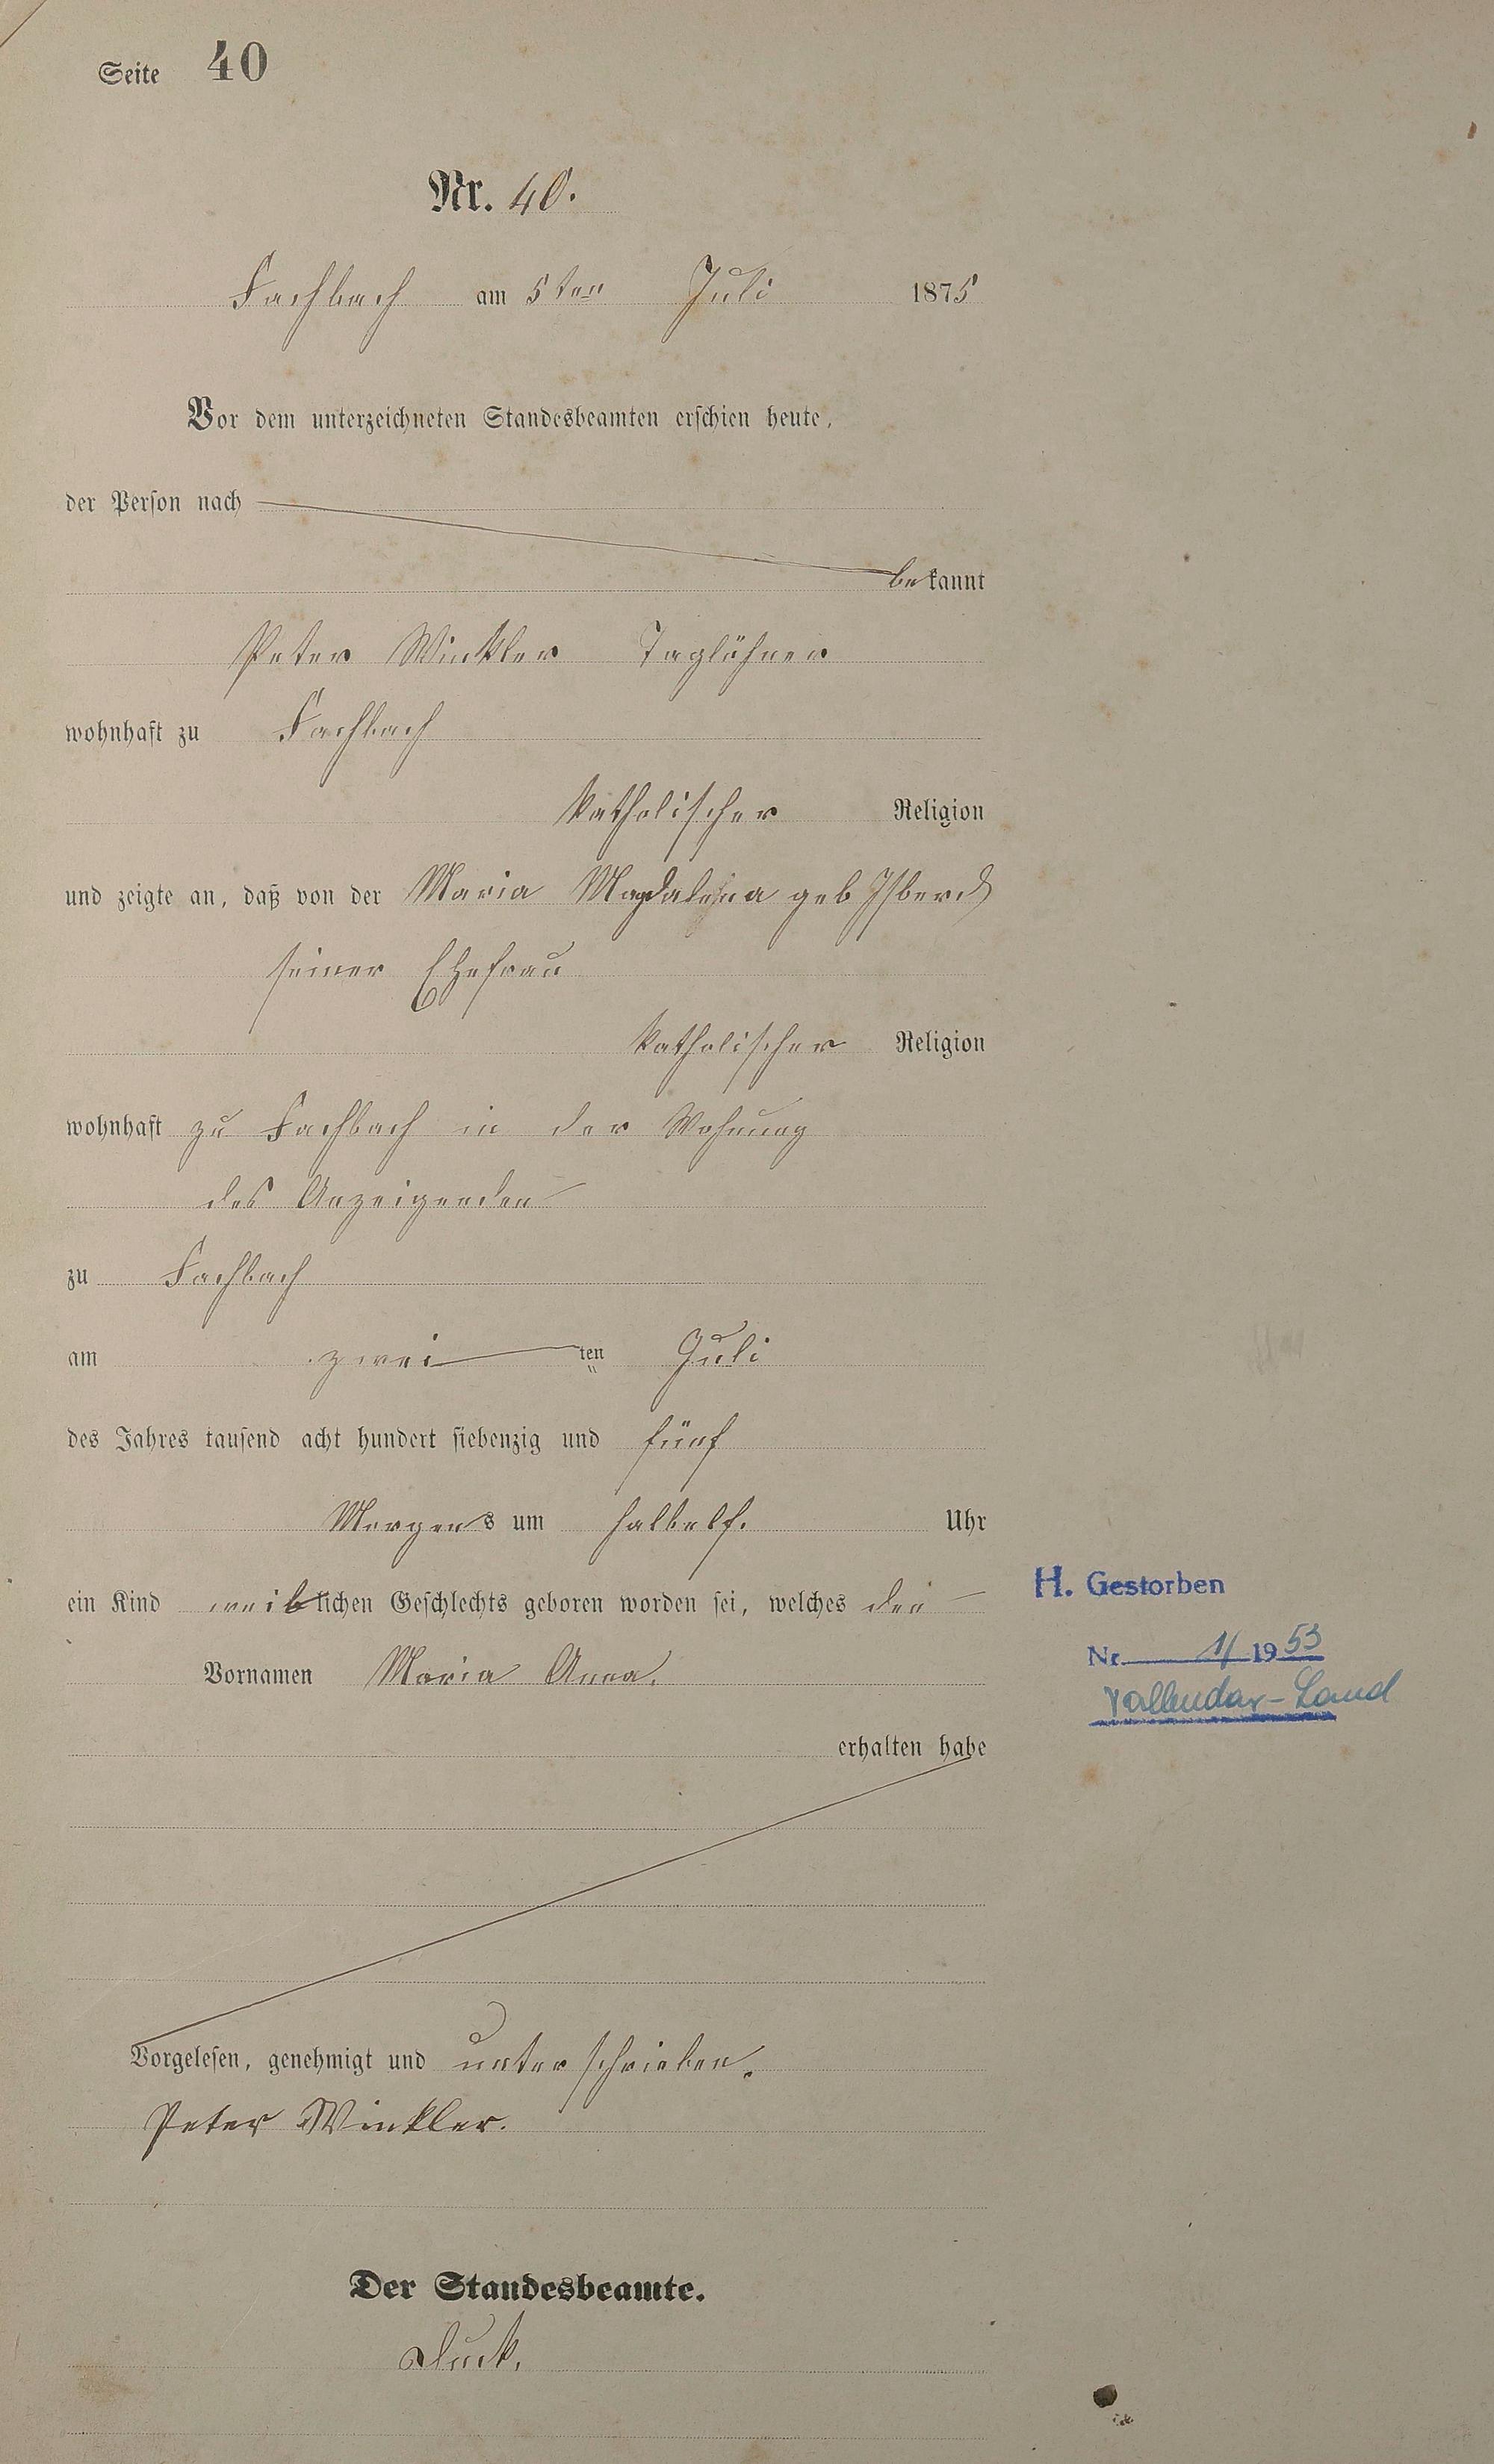 Seite 40
Nr. 40.
Fachbach am 5ten Juli 1875
Vor dem unterzeichneten Standesbeamten erschien heute,
der Person nach
bekannt
Peter Winkler Taglöhner
wohnhaft zu Fachbach
katholischer Religion
und zeigte an, daß von der Maria Magdalena geb
seiner Ehefrau
katholischer Religion
wohnhaft zu Fachbach in der Wohnung
des Anzeigenden
zu Fachbach
am zwei ten Juli
des Jahres tausend acht hundert siebenzig und fünf
Morgens um halbelf. Uhr
ein Kind weiblichen Geschlechts geboren worden sei, welches den
H. Gestorben
Vornamen Maria Anna.
Nr. 1/1953
Vallendar-Land
erhalten habe
Vorgelesen, genehmigt und unterschrieben.
Peter Winkler.
Der Standesbeamte.